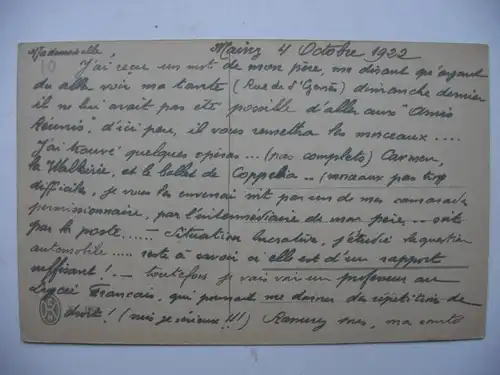 Mademoiselle, Mainz 4 Octobre 1922
10
J'ai reçu un mot de mon père, me disant qu'ayant
du aller voir ma tante (Rue de d'Ypres) dimanche dernier
il ne lui avait pas été possible d'aller aux "Amis
Réunis", d'ici peu, il vous remettra les morceaux....
J'ai trouvé quelques opéras... (pas complets) Carmen,
la Walkirie, et le ballet de Coppelia.. (morceaux pas trop
difficile, je vous les enverrai soit par un de mes camarades
permissionnaire, par l'intermédiaire de mon père.. soit
par la poste..... - Situation lucrative, j'étudie la question
automobile.... reste à savoir si elle est d'un rapport
suffisant! - toutefois je vais voir un professeur au
Lycée Français, qui pourrait me donner des répétitions de
droit! (suis je sérieux!!!) mes, ma santé